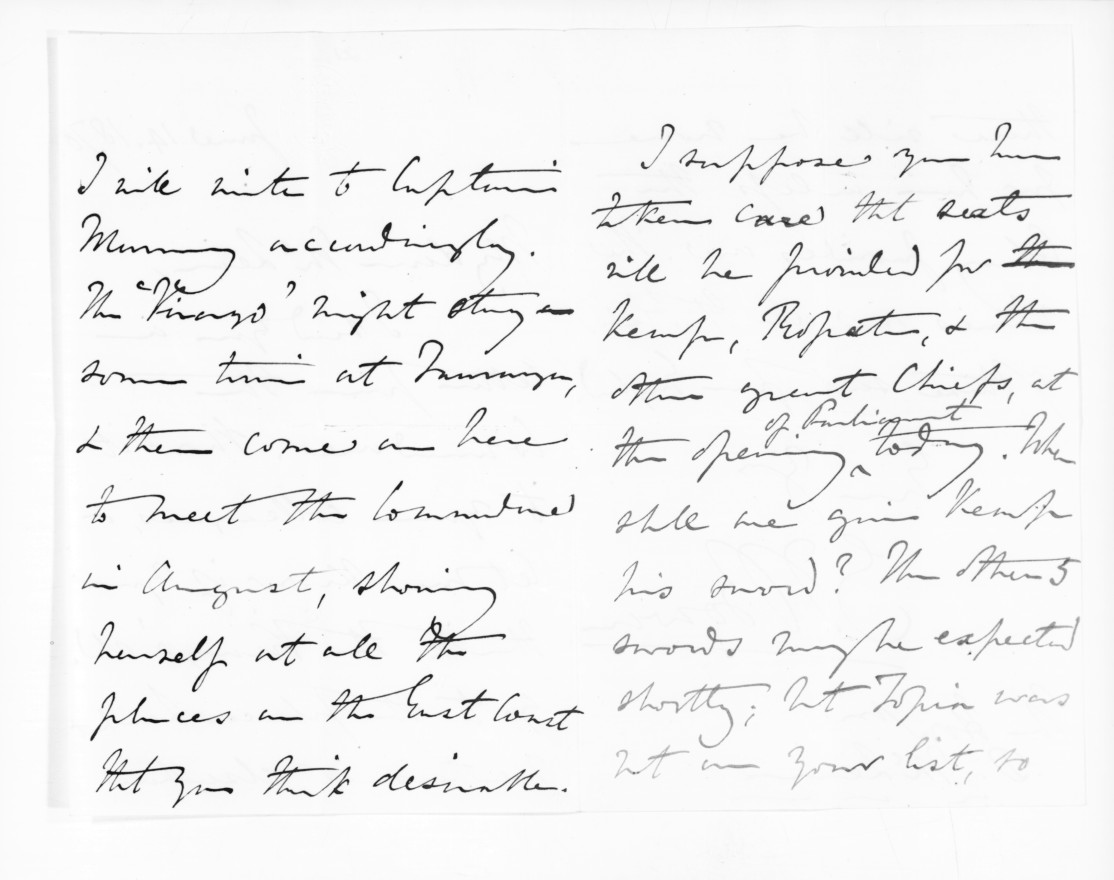 I will write to Captain
Manning accordingly.
The "Virago" might stay on
some time at Tauranga,
& then come on here
to meet the Commodore
in August, showing
herself at all the
places on the East Coast
that you think desirable.
I suppose you have
taken care that seats
will be provided for the
Kemp, Ropata, & the
other great Chiefs, at
the opening of Parliament today. When
shall we give Kemp
his sword? The other 5
swords may be expected
shortly; but Topia was
not on your list, so